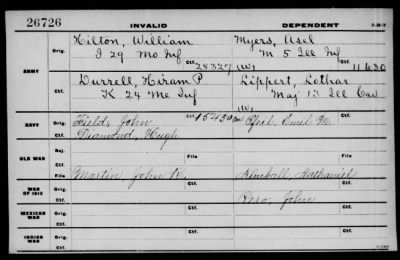 26726 INVALID DEPENDENT
Hilton, William Myers, Asel
Orig. I 29 Mo Inf M 5 Ill Inf
Ctf. 28327 (W) 11630
ARMY
Durrell, Hiram P Lippert, Lothar
Orig. K 24 Me Inf Maj 13 Ill Cav
Ctf. (W)
NAVY Orig. Fields, John Ctf. 15430 Pfeil, Emil M.
Ctf. Diamond, Hugh
OLD WAR Rej.
Ctf. File File
WAR OF 1812 Orig. Martin, John Kimball, Nathaniel
Ctf. Ctf. Ctf.
MEXICAN WAR Orig. John
Ctf.
INDIAN WAR Orig.
Ctf.